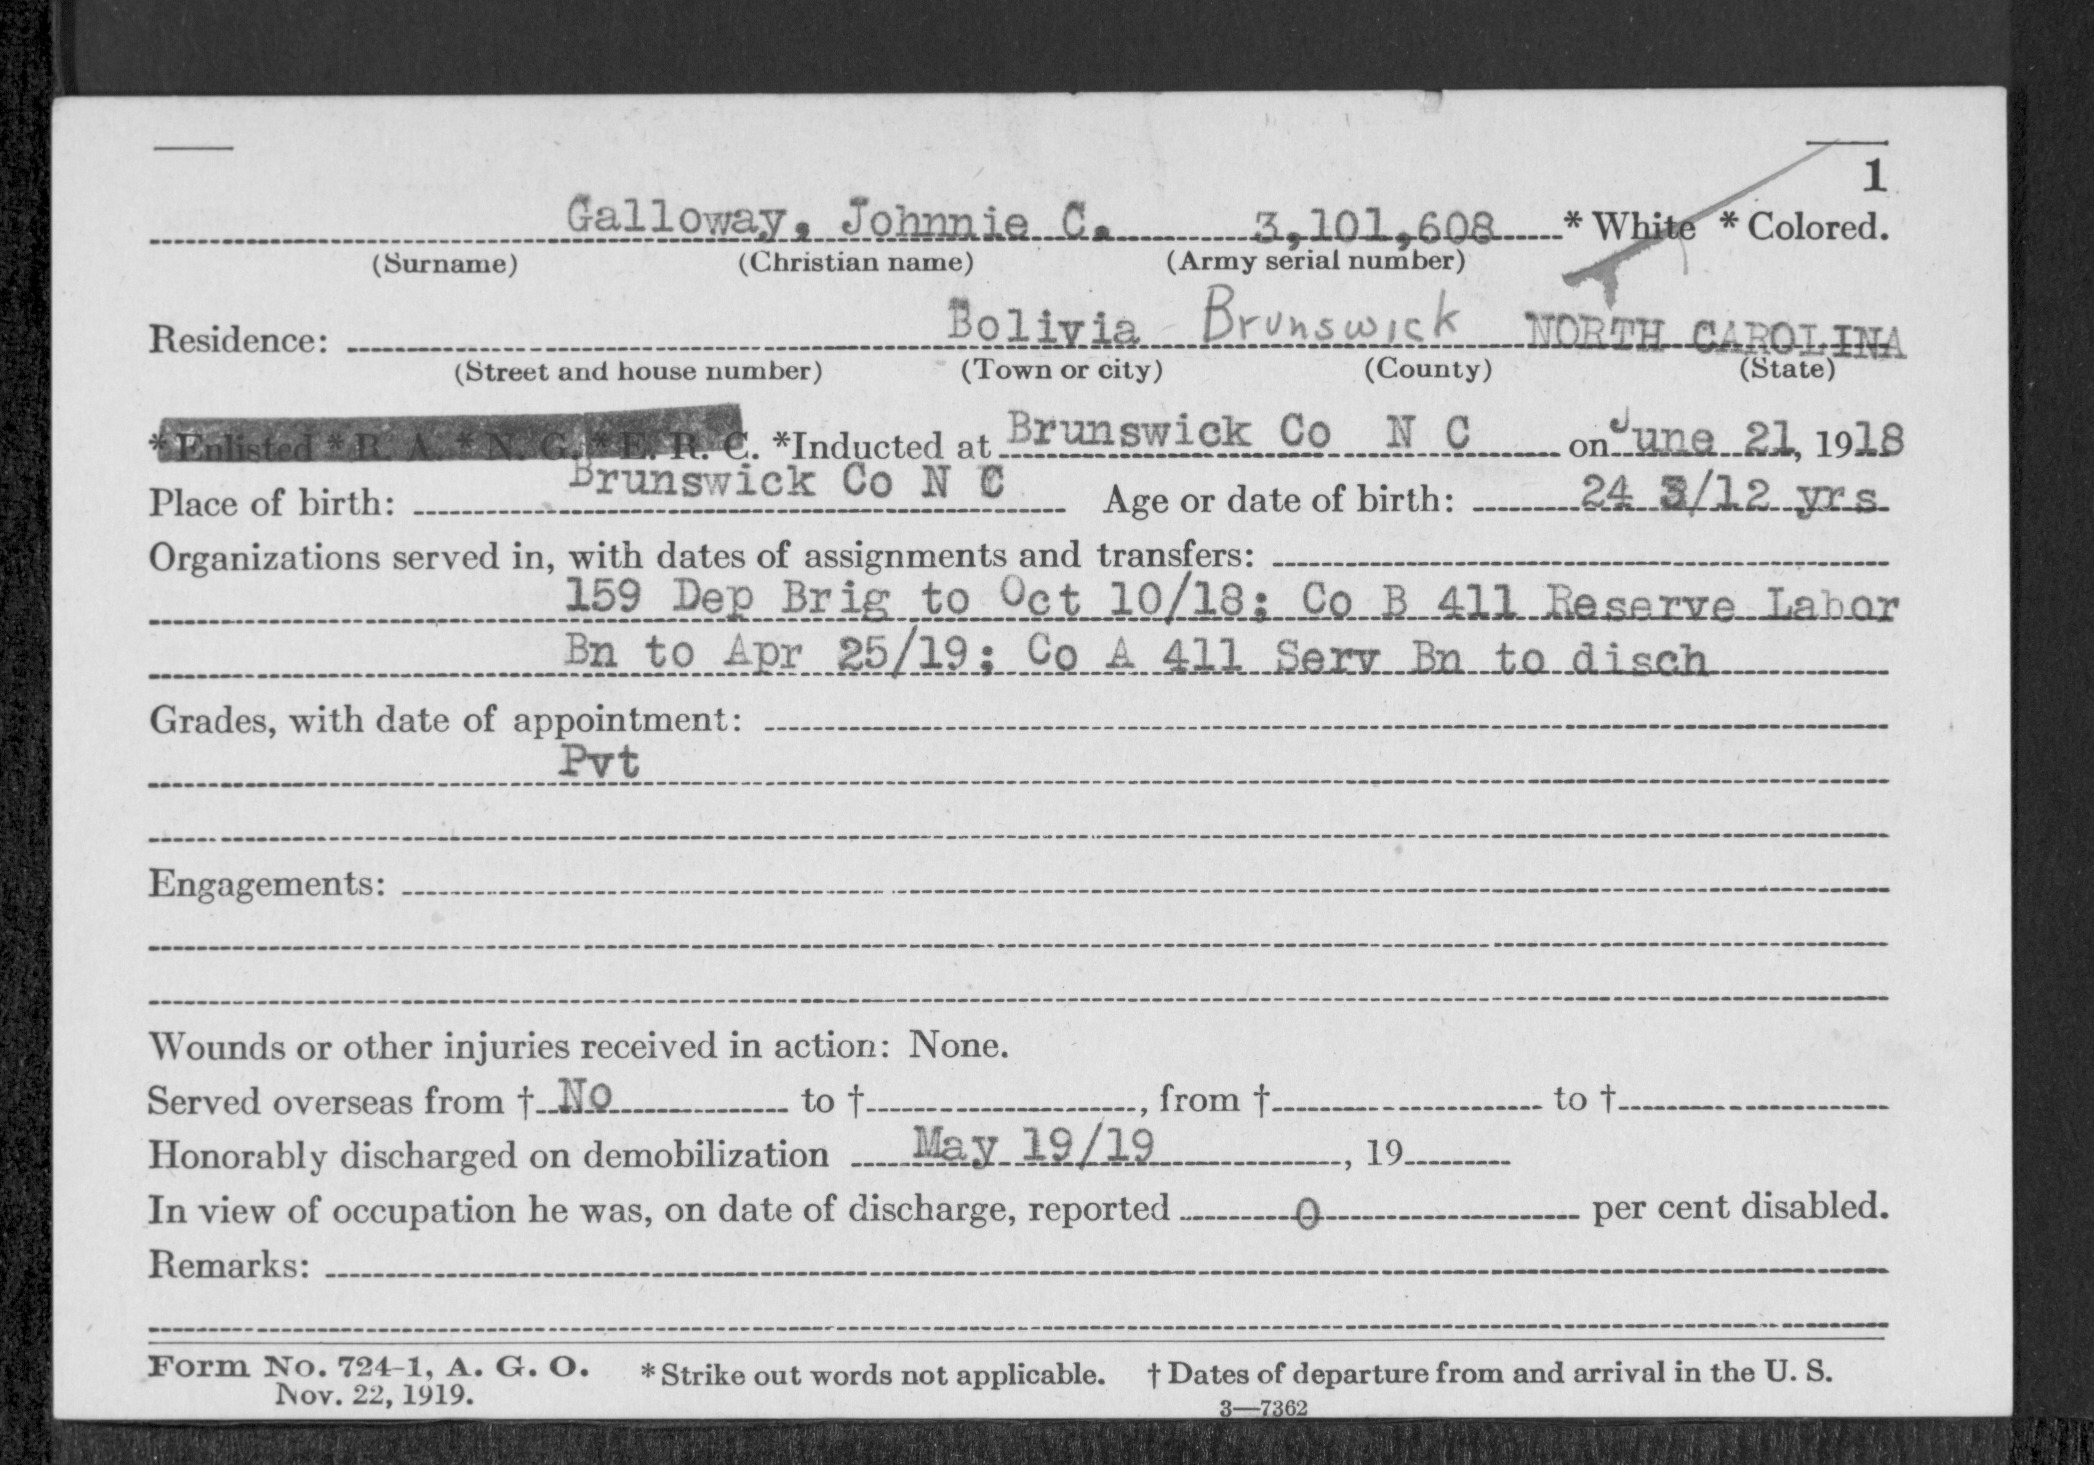 1
Galloway, Johnnie C. 3,101,608 * White * Colored.
(Surname) (Christian name) (Army serial number)
Residence: Bolivia Brunswick NORTH CAROLINA
(Street and house number) (Town or city) (County) (State)
* Enlisted * R. A. * N. G. * E. R. C. *Inducted at Brunswick Co N C on June 21, 1918
Place of birth: Brunswick Co N C Age or date of birth: 24 3/12 yrs
Organizations served in, with dates of assignments and transfers:
159 Dep Brig to Oct 10/18; Co B 411 Reserve Labor
Bn to Apr 25/19; Co A 411 Serv Bn to disch
Grades, with date of appointment:
Pvt
Engagements:
Wounds or other injuries received in action: None.
Served overseas from † No to †, from † to †
Honorably discharged on demobilization May 19/19, 19
In view of occupation he was, on date of discharge, reported 0 per cent disabled.
Remarks:
Form No. 724-1, A. G. O. * Strike out words not applicable. † Dates of departure from and arrival in the U. S.
Nov. 22, 1919. 3—7362